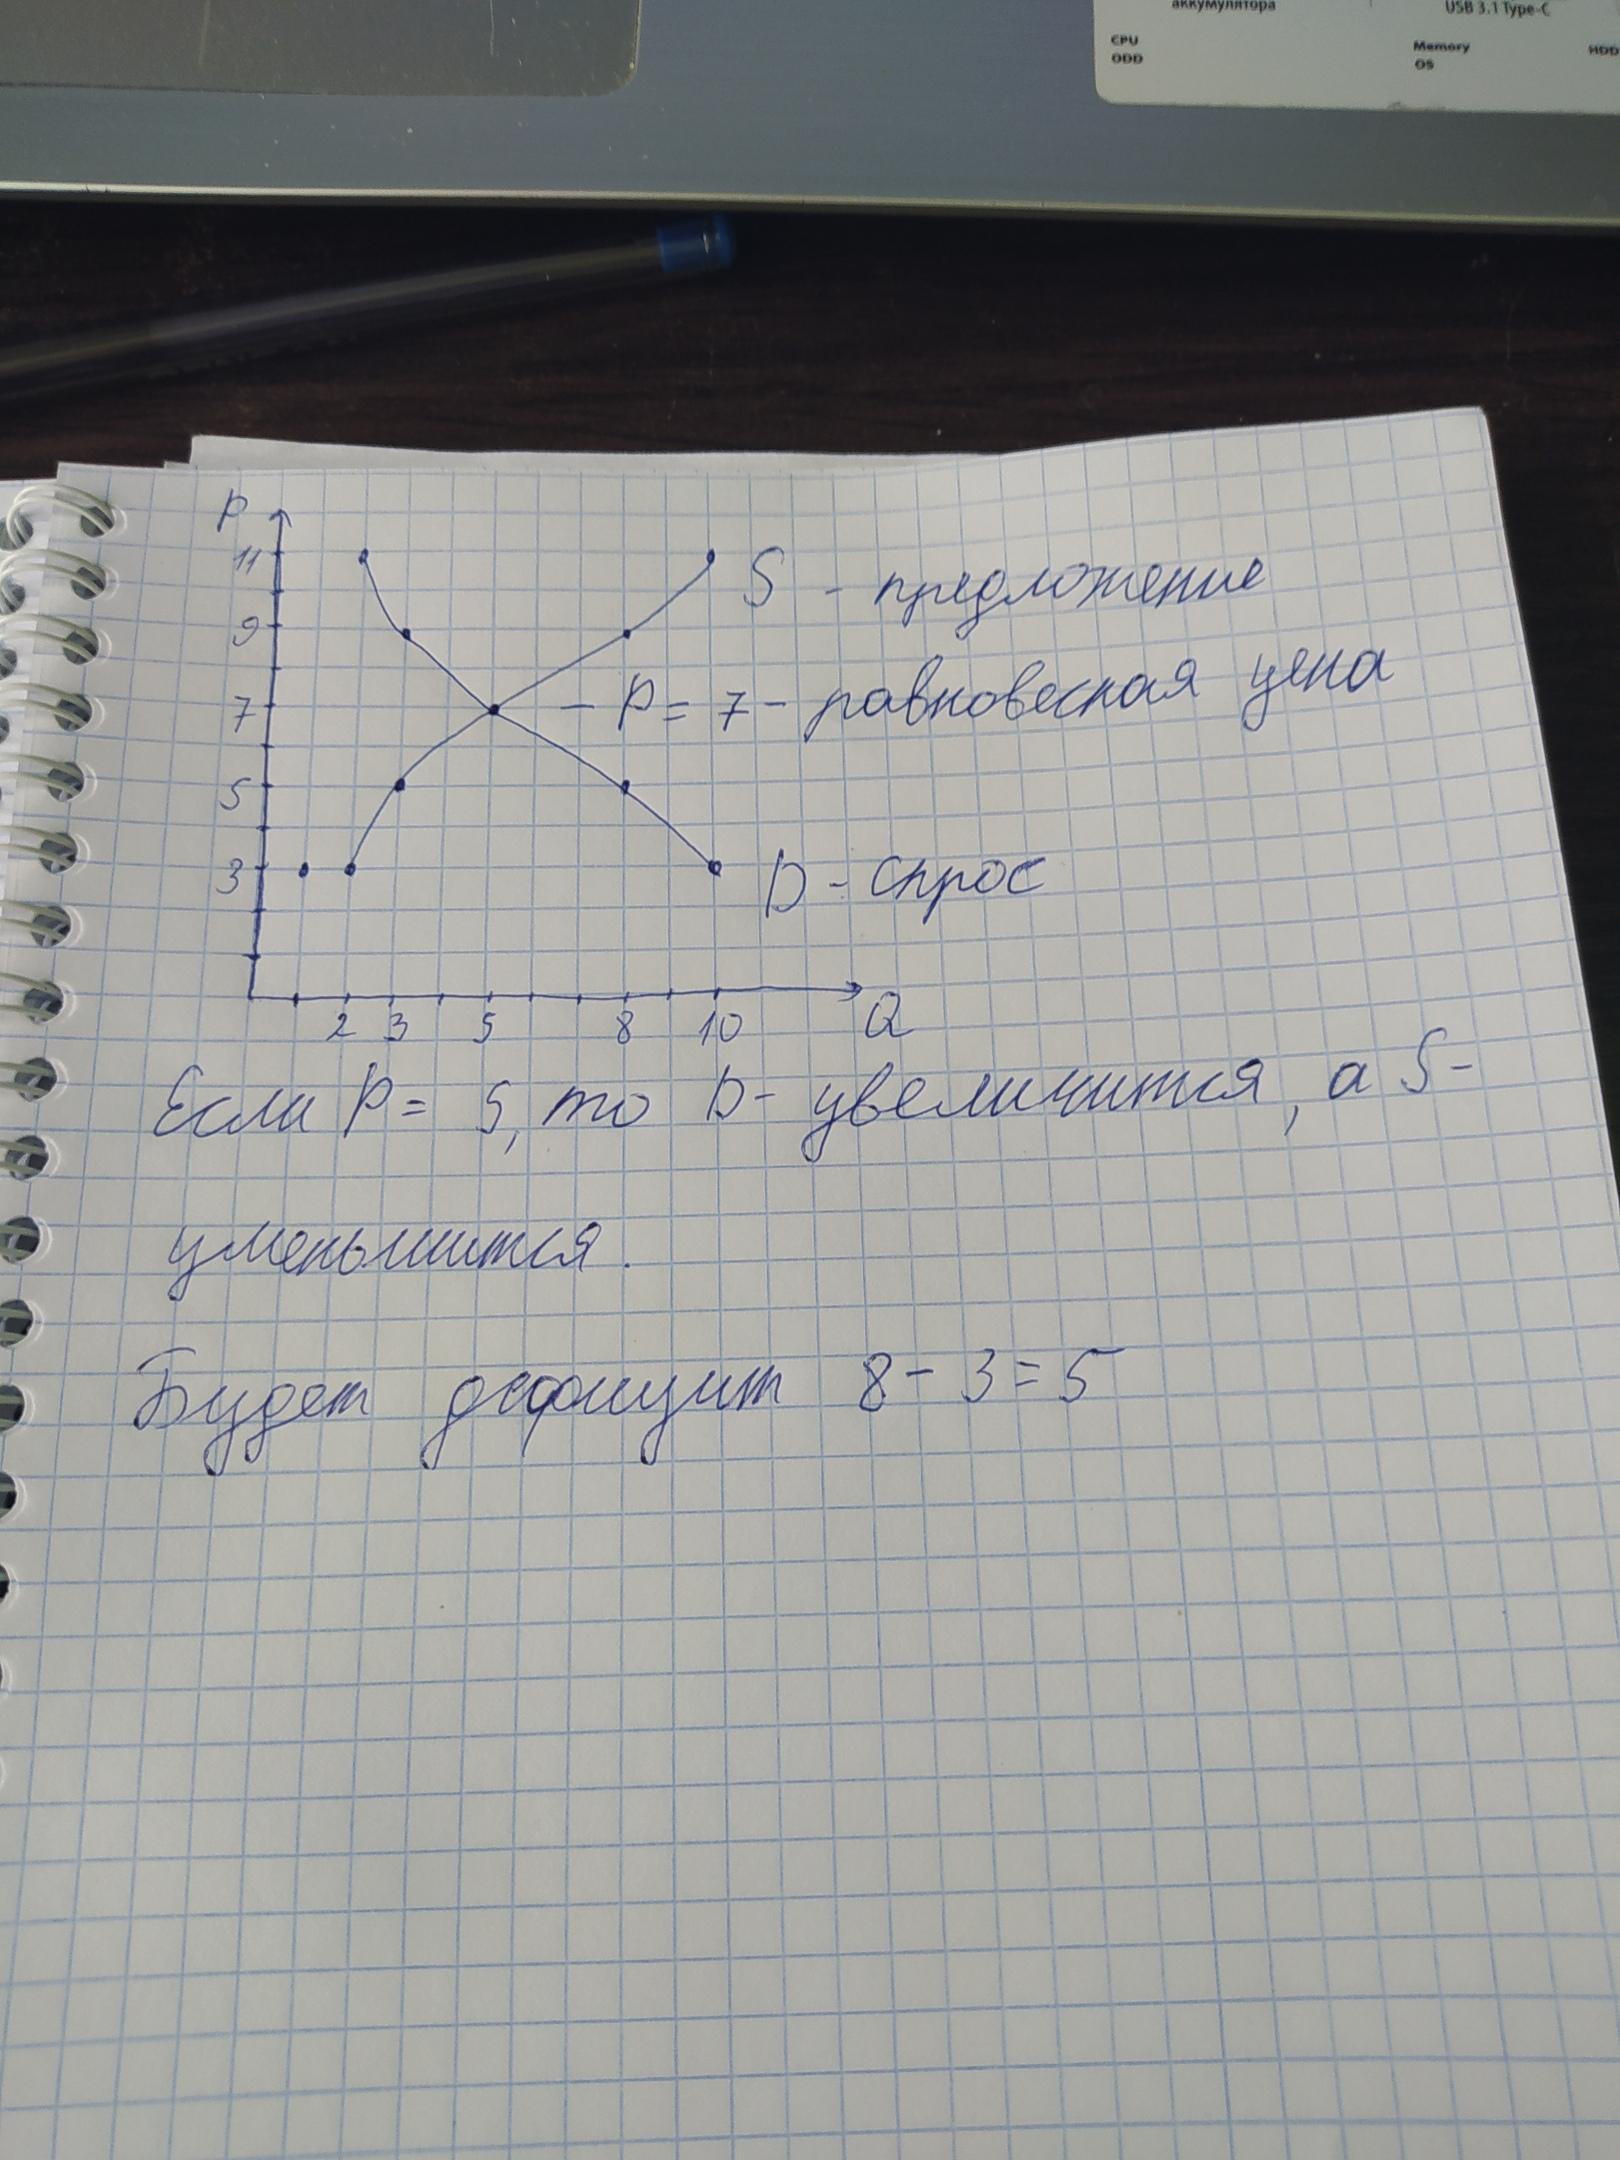 аккумулятора
USB 3.1 Type-C
CPU
ODD
Memory
OS
HDD
P
11
9
7
5
3
S - предложение
- P = 7 - равновесная цена
D - спрос
2 3 5 8 10 Q
Если P = 5, то D - увеличится, а S -
уменьшится.
Будет дефицит 8 - 3 = 5